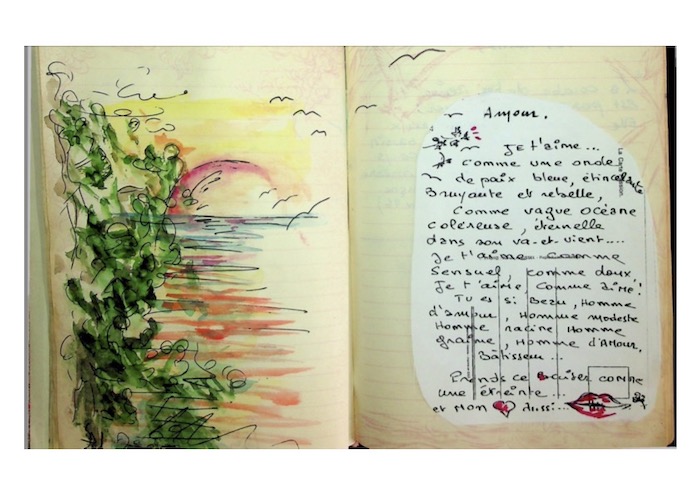 Amour.
Je t'aime...
comme une onde
de paix bleue, étincelante
Bruyante et rebelle,
Comme vague océane
coléreuse, éternelle
dans son va-et-vient....
Je t'aime comme
Sensuel, comme doux,
Je t'aime comme aimé!
Tu es si beau, Homme
d'amour, Homme modeste
Homme racine Homme
graine, Homme d'Amour,
Bâtisseur...
Prends ce baiser comme
une étreinte...
et Mon aussi...